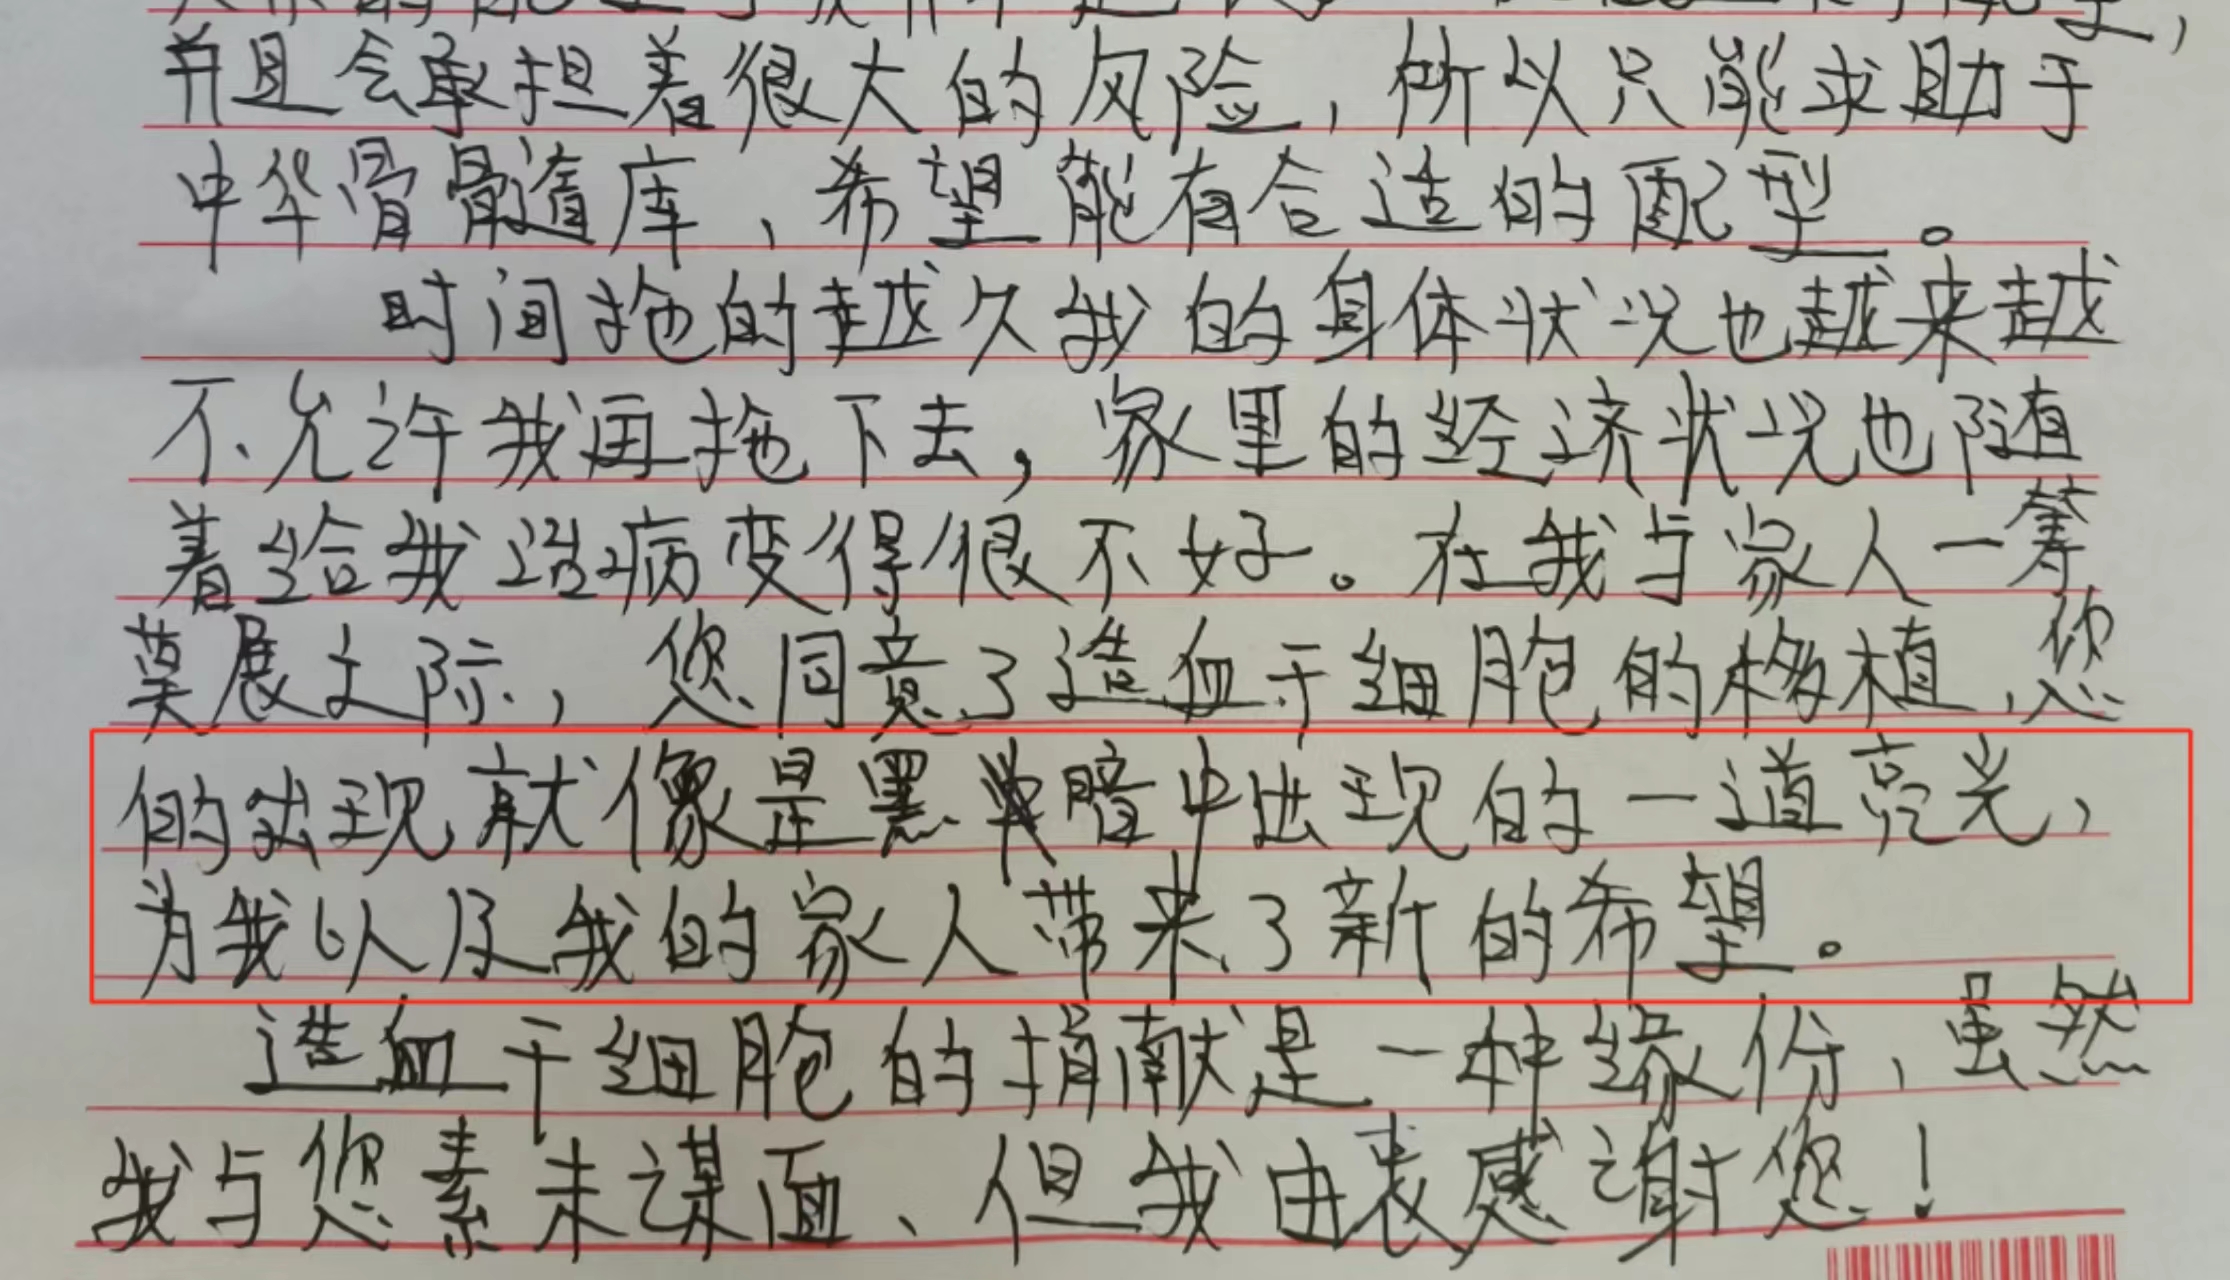 并且会承担着很大的风险，所以只能求助于
中华骨髓库、希望能有合适的配型。
时间拖的越久我的身体状况也越来越
不允许我再拖下去，家里的经济状况也随
着给我治病变得很不好。在我与家人一筹
莫展之际，您同意了造血干细胞的移植、您
的出现就像是黑暗中出现的一道亮光，
为我以及我的家人带来了新的希望。
造血干细胞的捐献是一种缘份、虽然
我与您素未谋面、但我由衷感谢您！